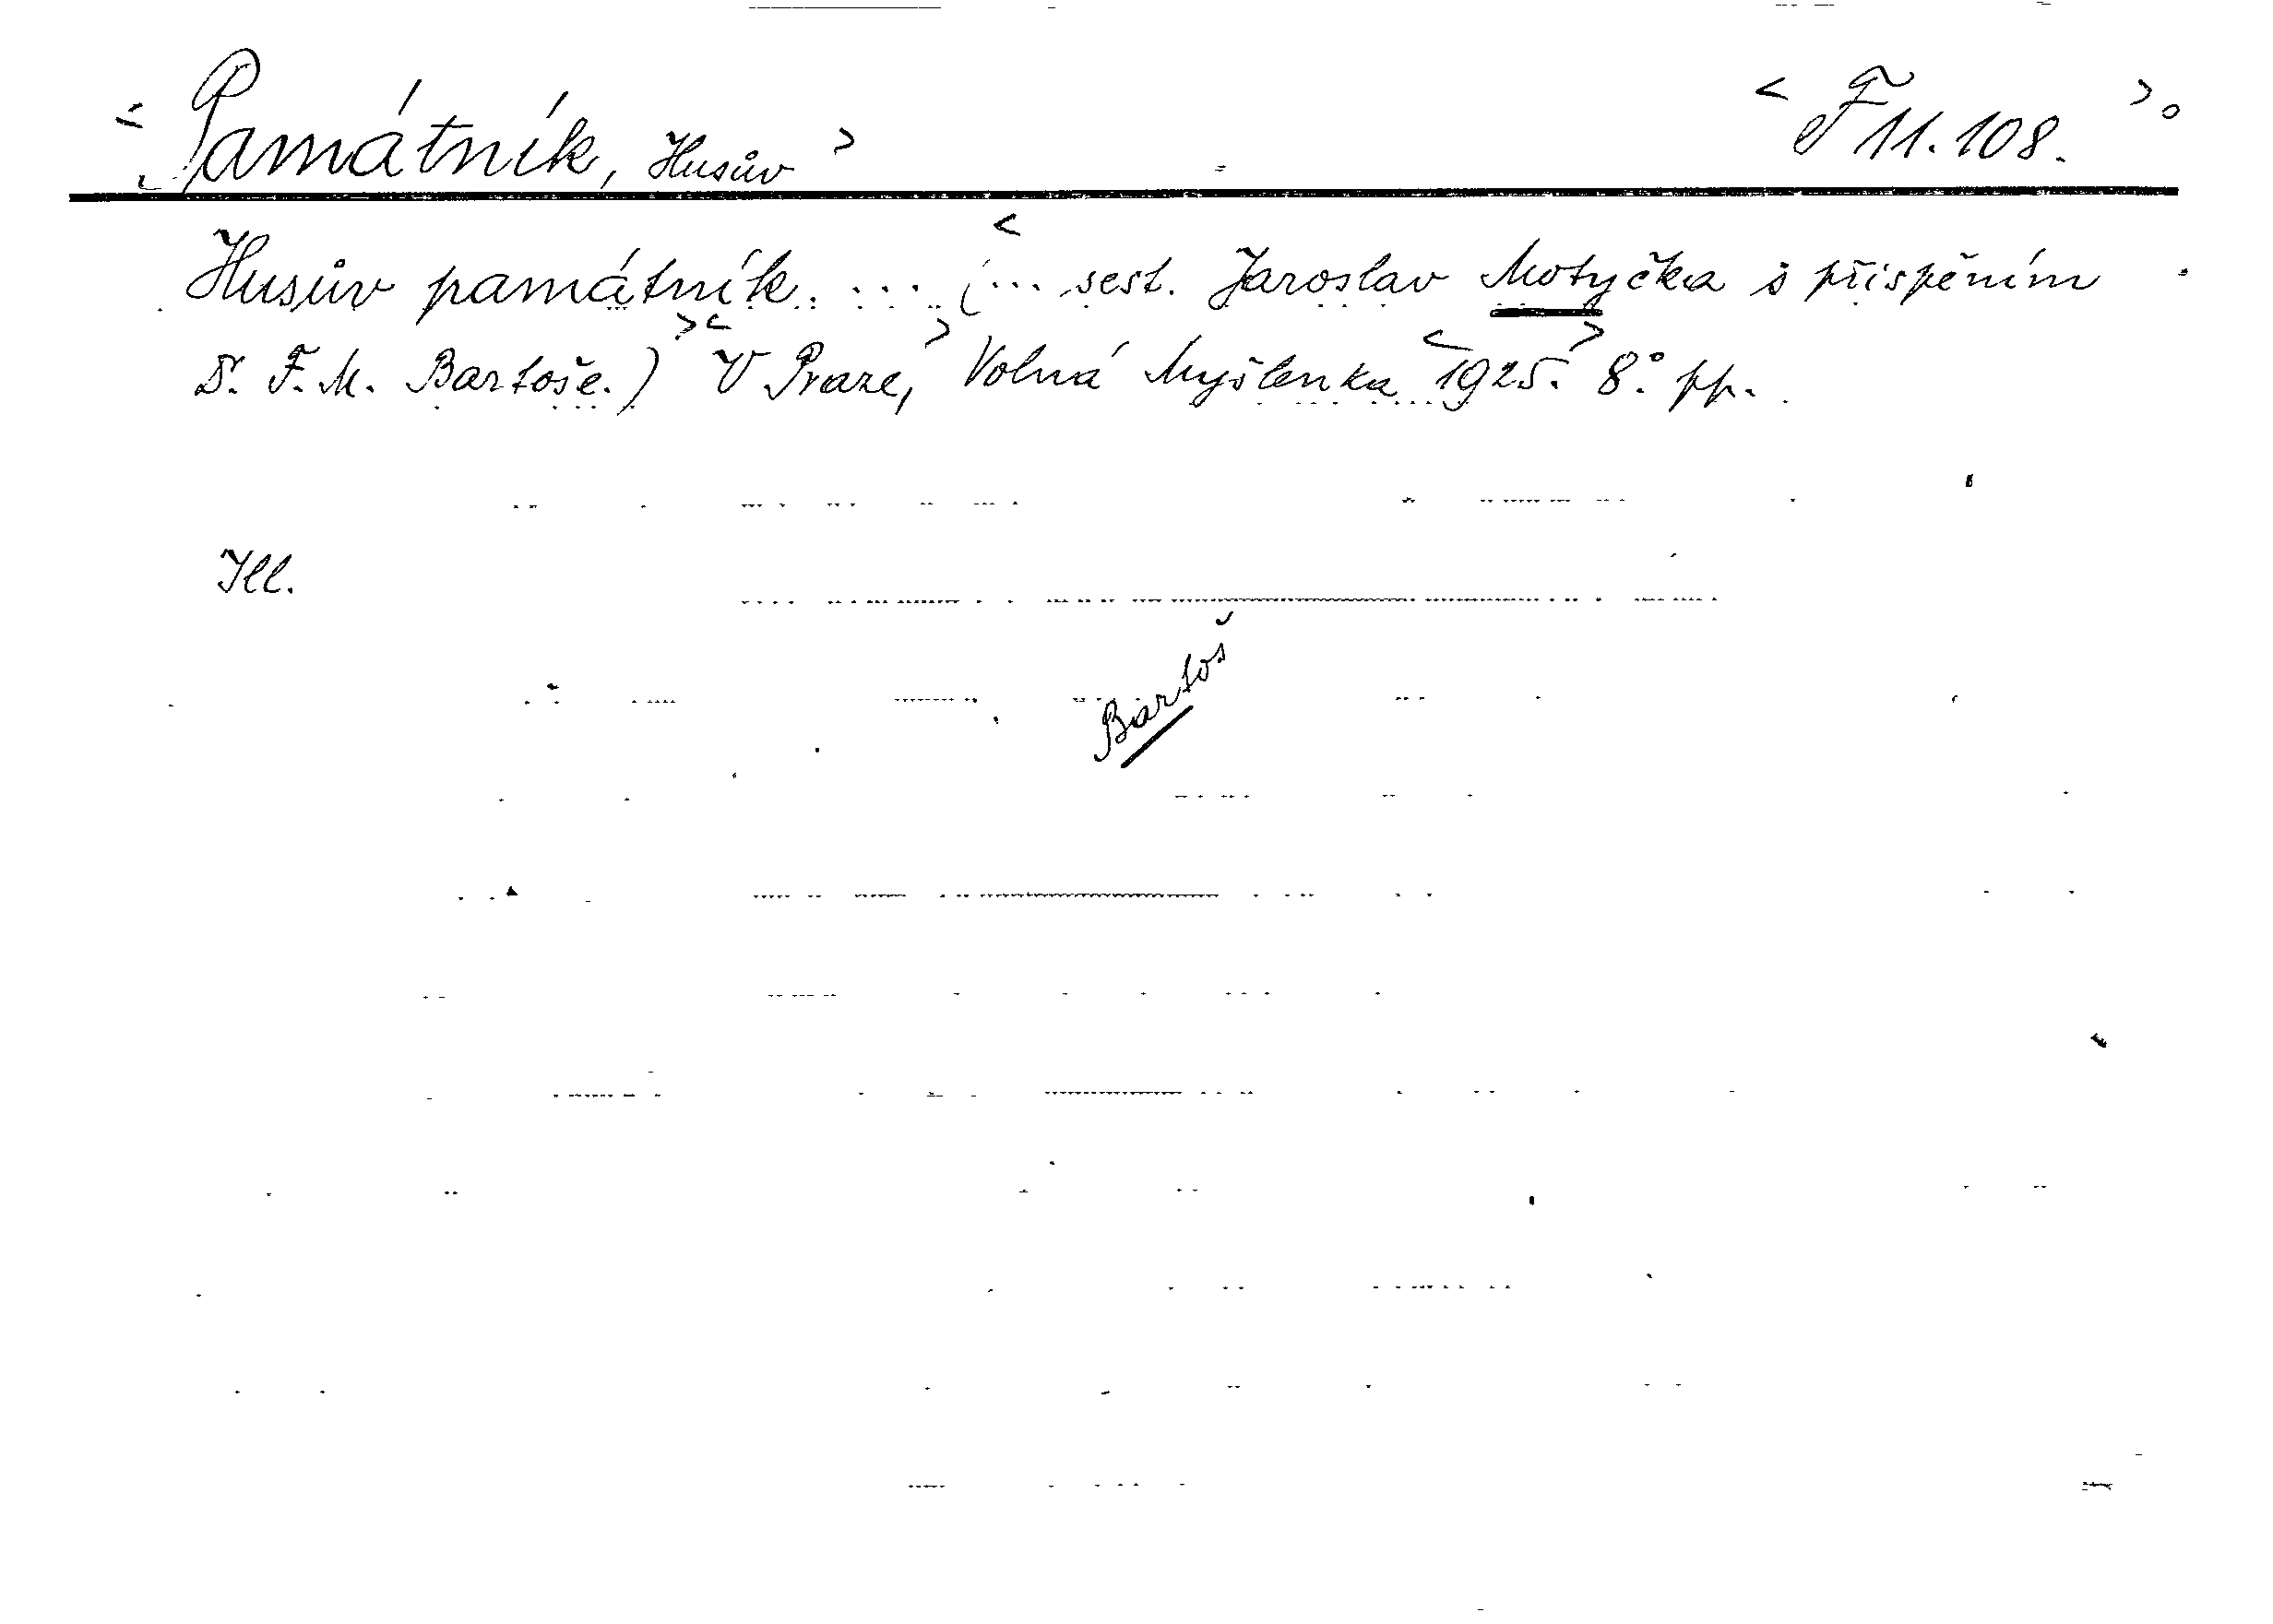 < Památník, Husův > < F 11.108. >°
Husův památník. ... <(... sest. Jaroslav Motyčka s přispěním
Dr. F. M. Bartoše.)> <V Praze,> Volná Myšlenka <1925.> 8° pp.
Ill.
Bartoš